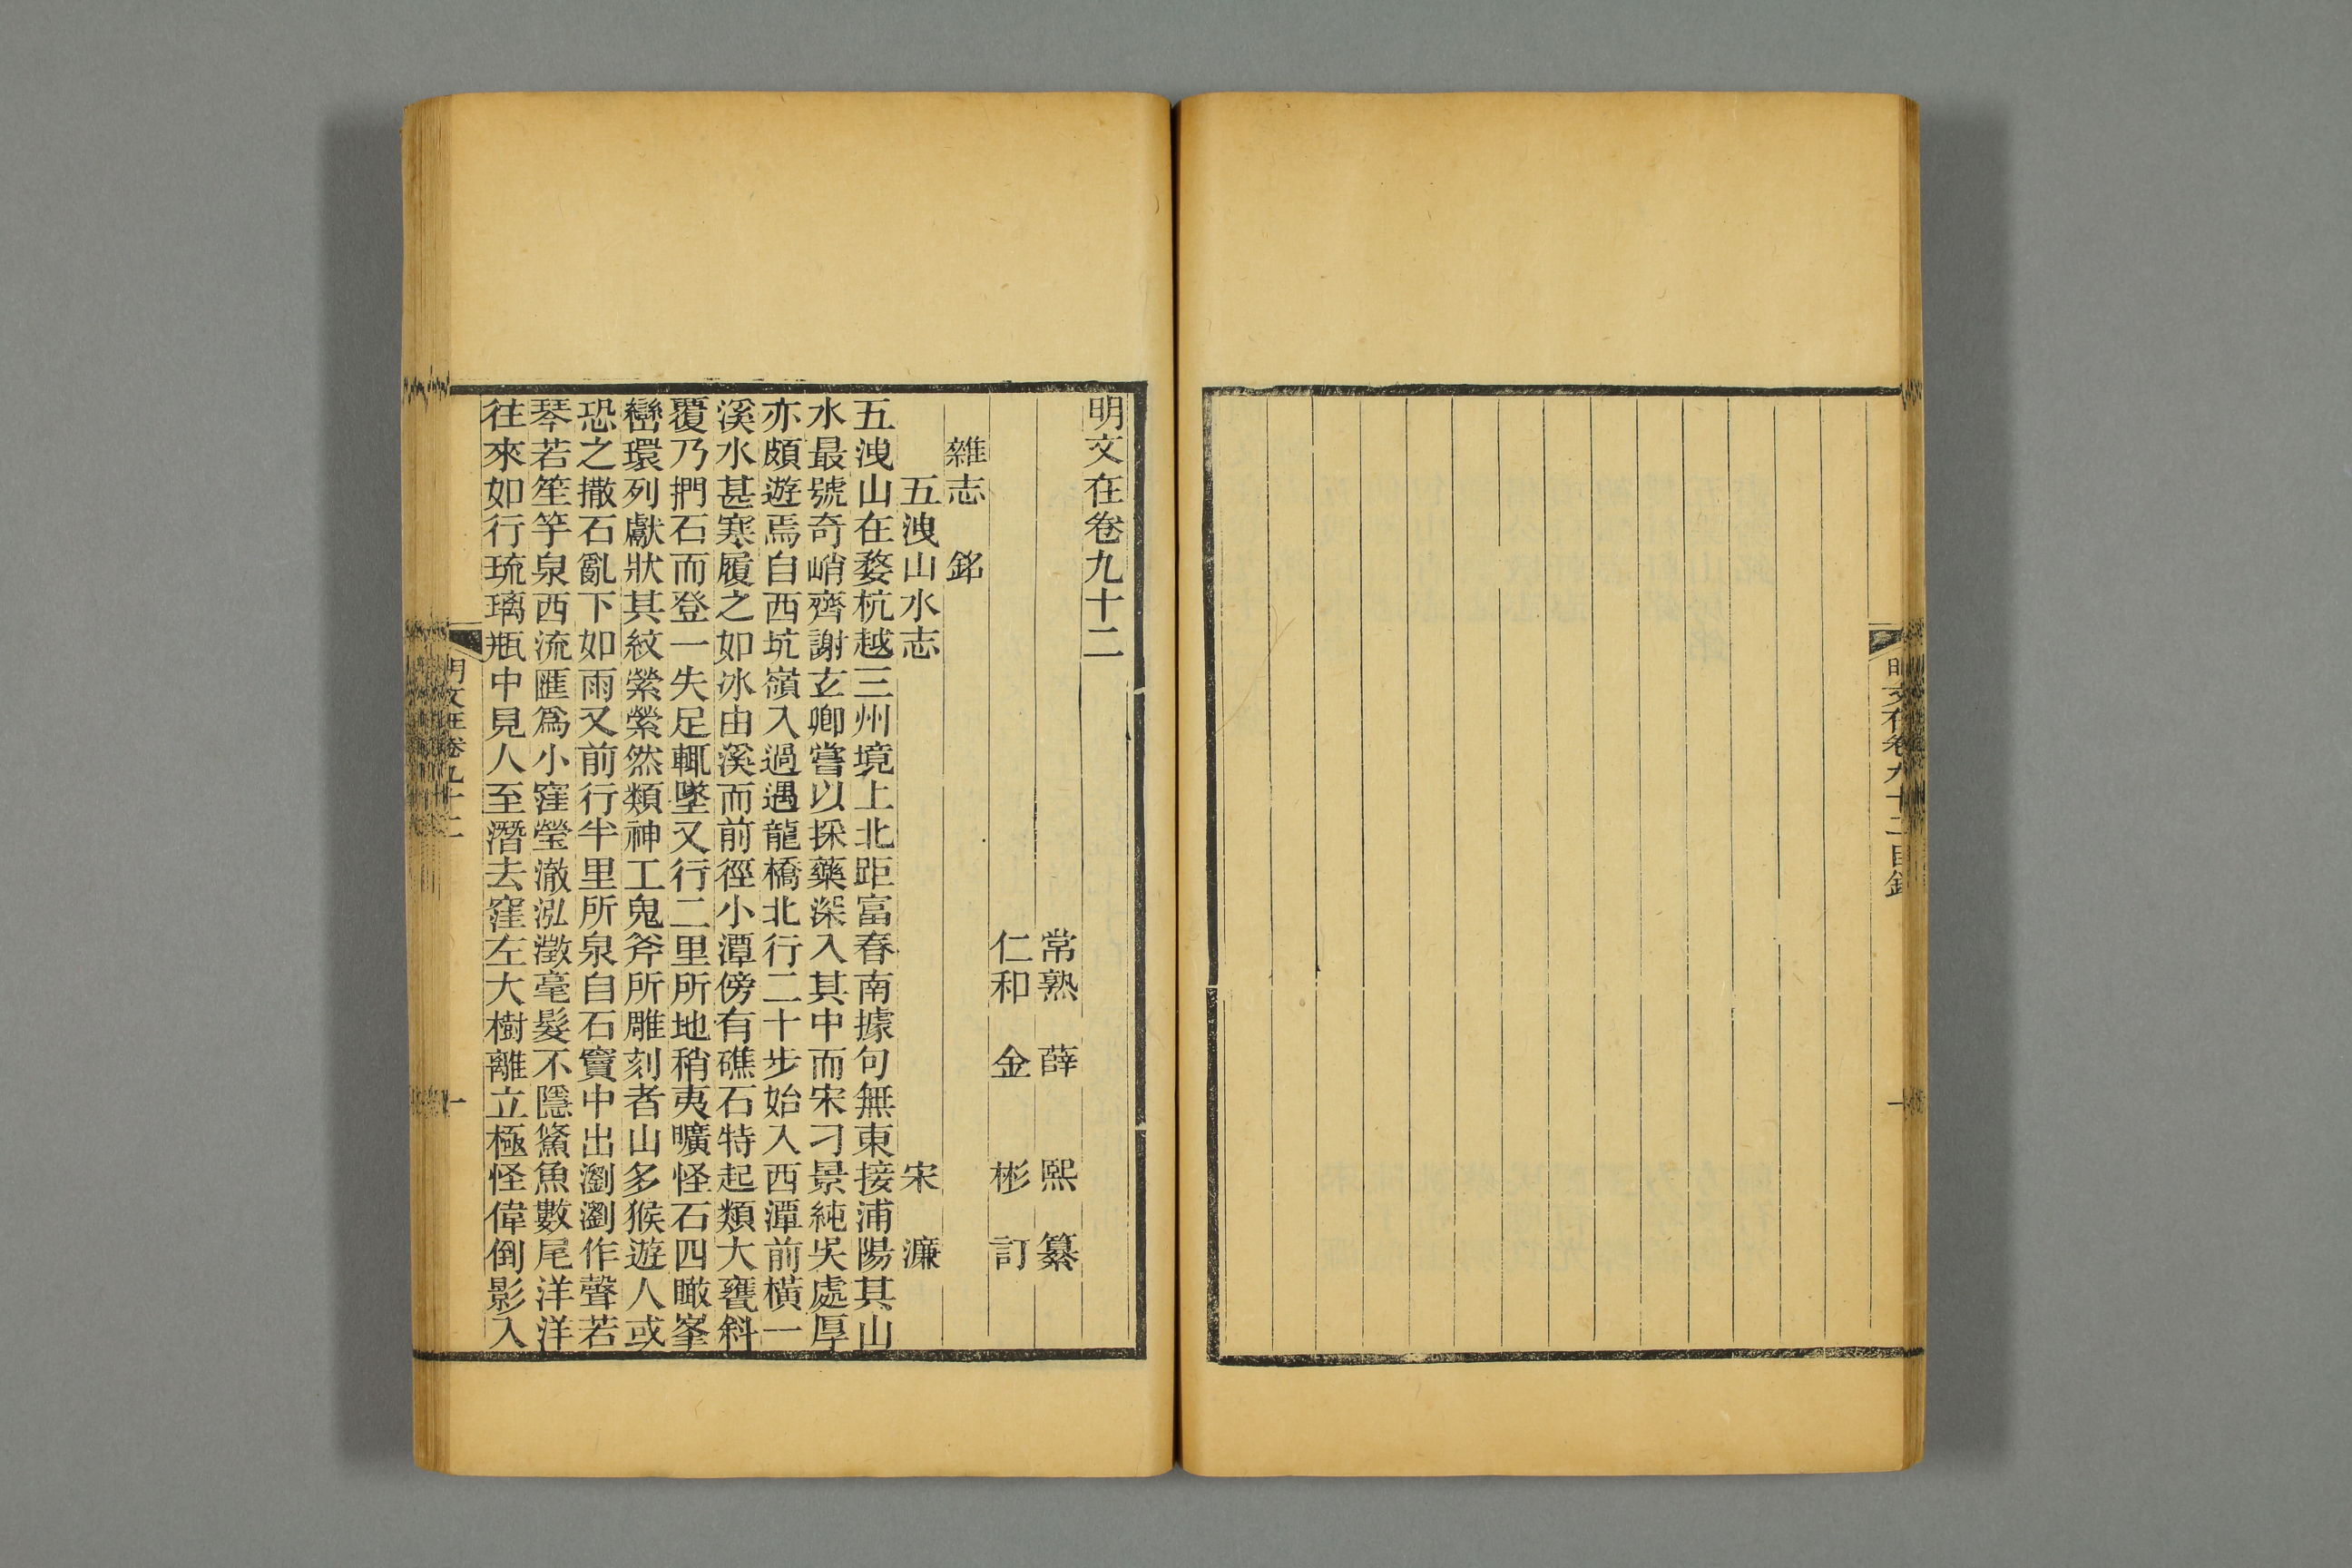 明文在卷九十二目錄
一
明文在卷九十二
常熟 薛 熙 纂
仁和 金 彬 訂
雜志 銘
五洩山水志 宋 濂
五洩山在婺杭越三州境上北距富春南據句無東接浦陽其山
水最號奇峭齊謝玄卿嘗以採藥深入其中而宋刁景純吳處厚
亦頗遊焉自西坑嶺入過遇龍橋北行二十步始入西潭前橫一
溪水甚寒履之如冰由溪而前徑小潭傍有礁石特起類大甕斜
覆乃捫石而登一失足輒墜又行二里所地稍夷曠怪石四瞰峯
巒環列獻狀其紋縈縈然類神工鬼斧所雕刻者山多猴遊人或
恐之撒石亂下如雨又前行半里所泉自石竇中出瀏瀏作聲若
琴若笙竽泉西流匯爲小窪瑩澈泓澂毫髮不隱鯈魚數尾洋洋
往來如行琉璃瓶中見人至潛去窪左大樹離立極怪偉倒影入
明文在卷九十二
一